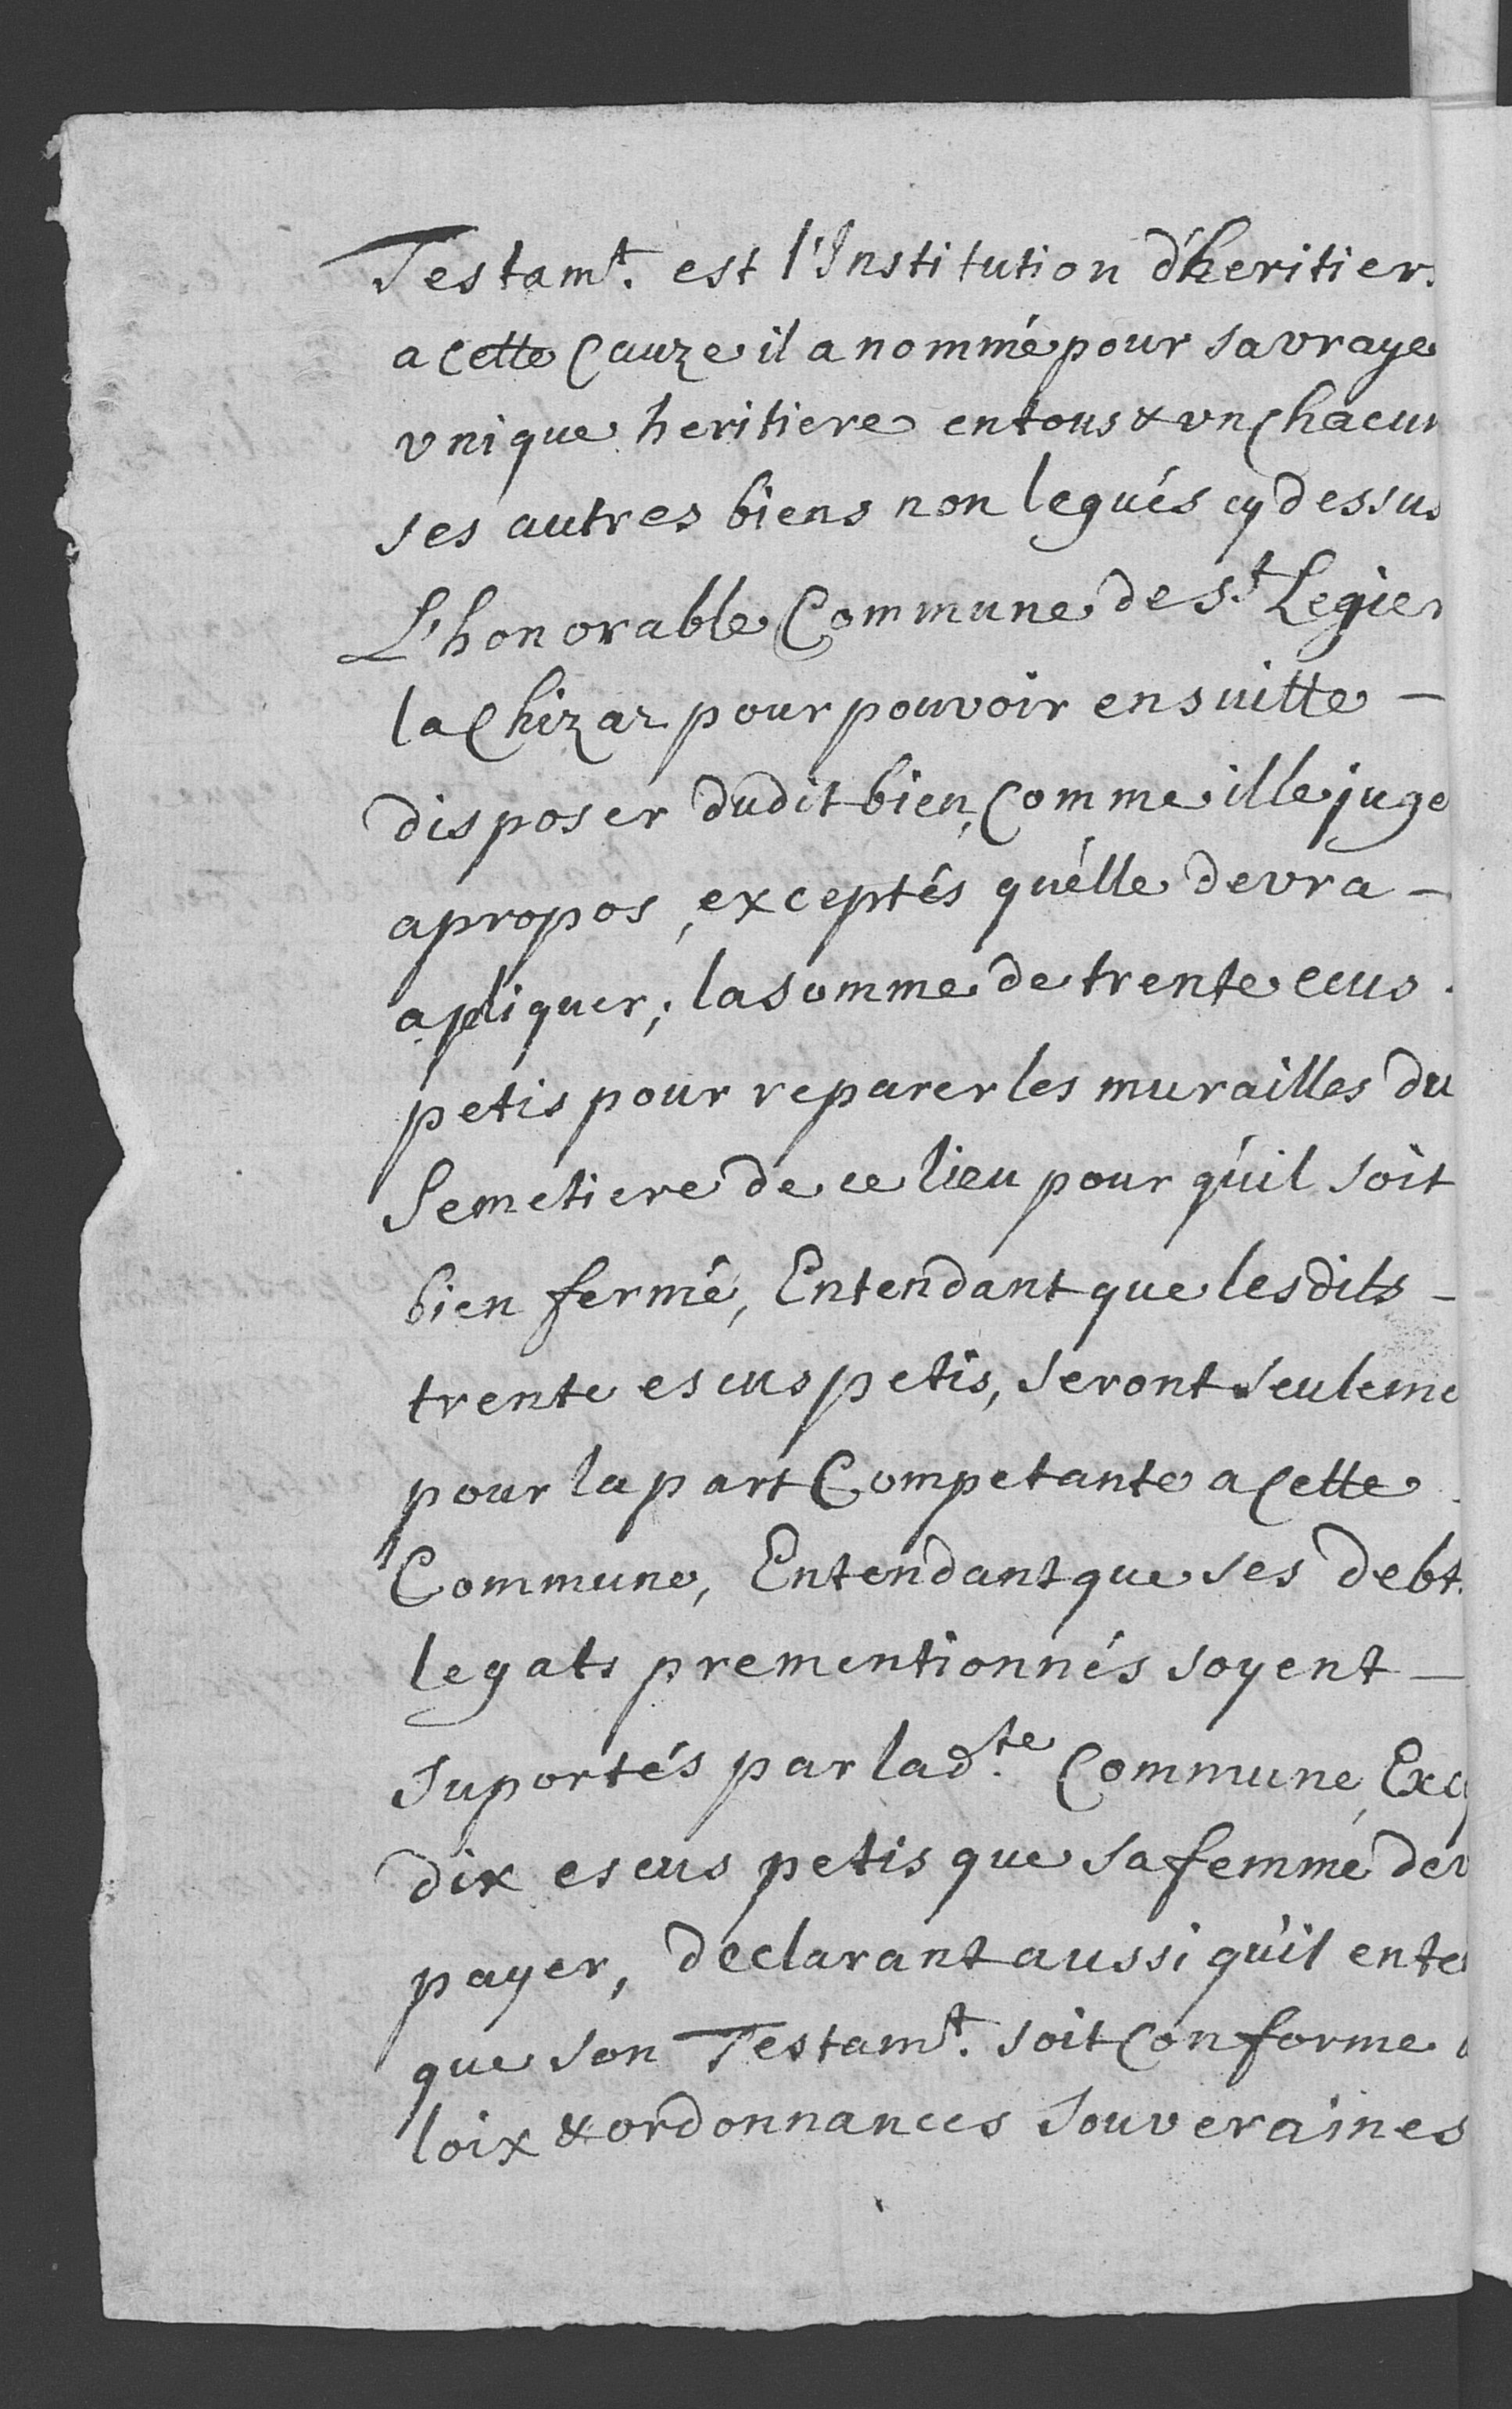 Testamt. est l'Institution d'heritier.
a cette Cauze il a nommé pour sa vraye
vnique heritiere en tous & vn Chacun
ses autres biens non legués cy dessus
L'honorable Commune de St. Legier
la Chizaz pour pouvoir ensuitte –
disposer dudit bien, Comme il le juge
a propos, exceptés qu'élle devra –
apliquer; la somme de trente ecus
petis pour reparer les murailles du
Semetiere de ce lieu pour qu'il soit
bien fermé, Entendant que lesdits –
trente escus petis, seront seuleme
pour la part Competante a Cette
Commune, Entendant que ses debt
legats prementionnés soyent –
suportés par lad.te Commune, Exc
dix escus petis que sa femme dev
payer, declarant aussi qu'il ente
que son Testamt. soit Conforme
loix & ordonnances souveraines